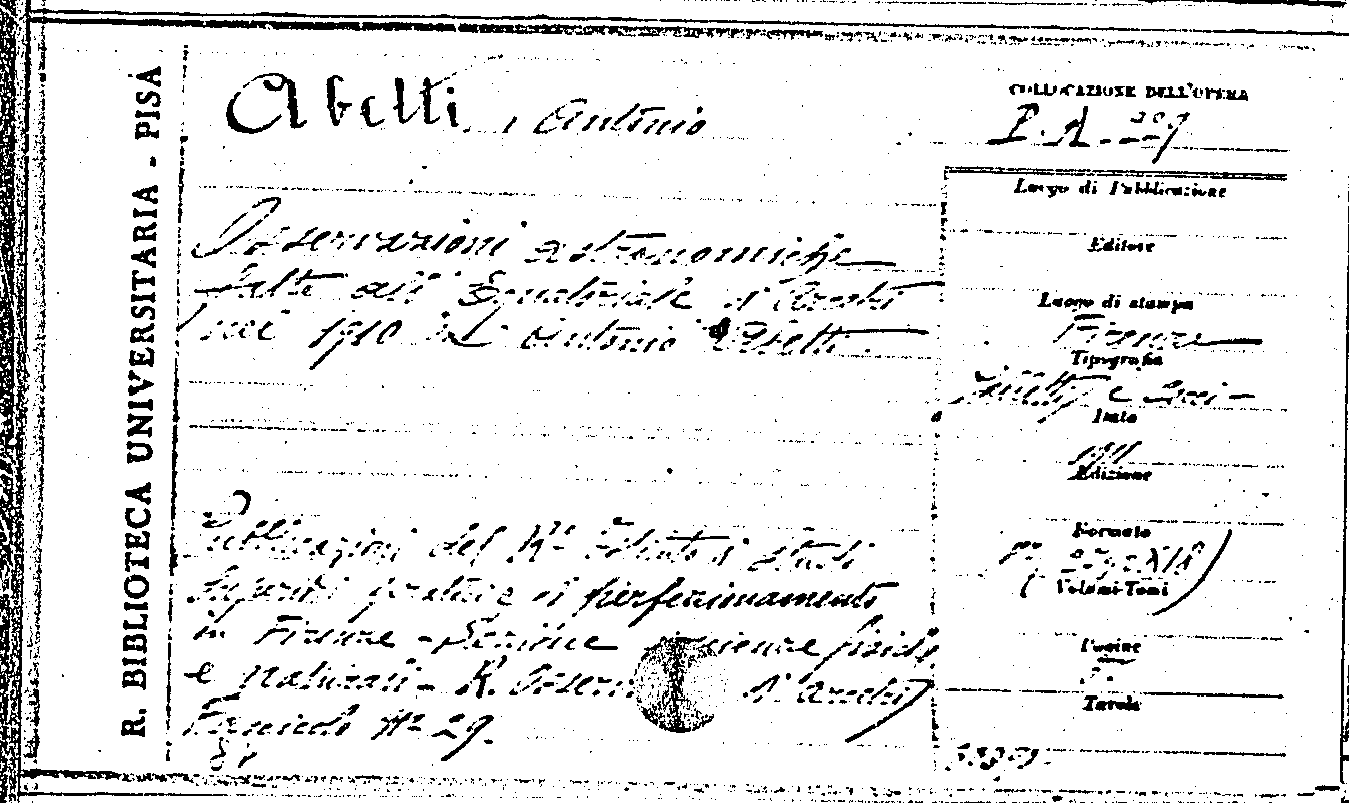 R. BIBLIOTECA UNIVERSITARIA - PISA
Abetti, Antonio
Osservazioni astronomiche
fatte all' Equatoriale d'Arcetri
nel 1910 da Antonio Abetti.
Pubblicazioni del R.° Istituto di studi
superiori pratici e di perfezionamento
in Firenze - Sezione scienze fisiche
e naturali - R. Osserv d'Arcetri)
Fascicolo N° 29.
COLLOCAZIONE DELL'OPERA
Luogo di Pubblicazione
Editore
Luogo di stampa
Firenze
Tipografia
e Soci -
Data
1911
Edizione
Formato
Volumi-Tomi
Pagine
Tavole